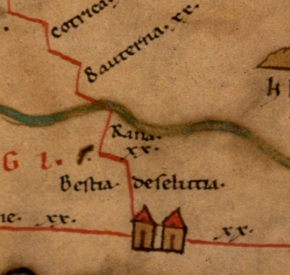 cotrica
Bauterna. xx.
Raina.
xx.
G I. r
Bestia desolutia.
ne. xx.
xx.